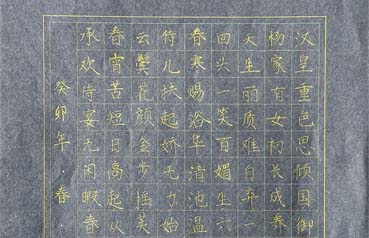 汉皇重色思倾国御
杨家有女初长成养
天生丽质难自弃一
回头一笑百媚生六
春寒赐浴华清池温
侍儿扶起娇无力始
云鬓花颜金步摇芙
春宵苦短日高起从
承欢侍宴无闲暇春
癸卯年·春·